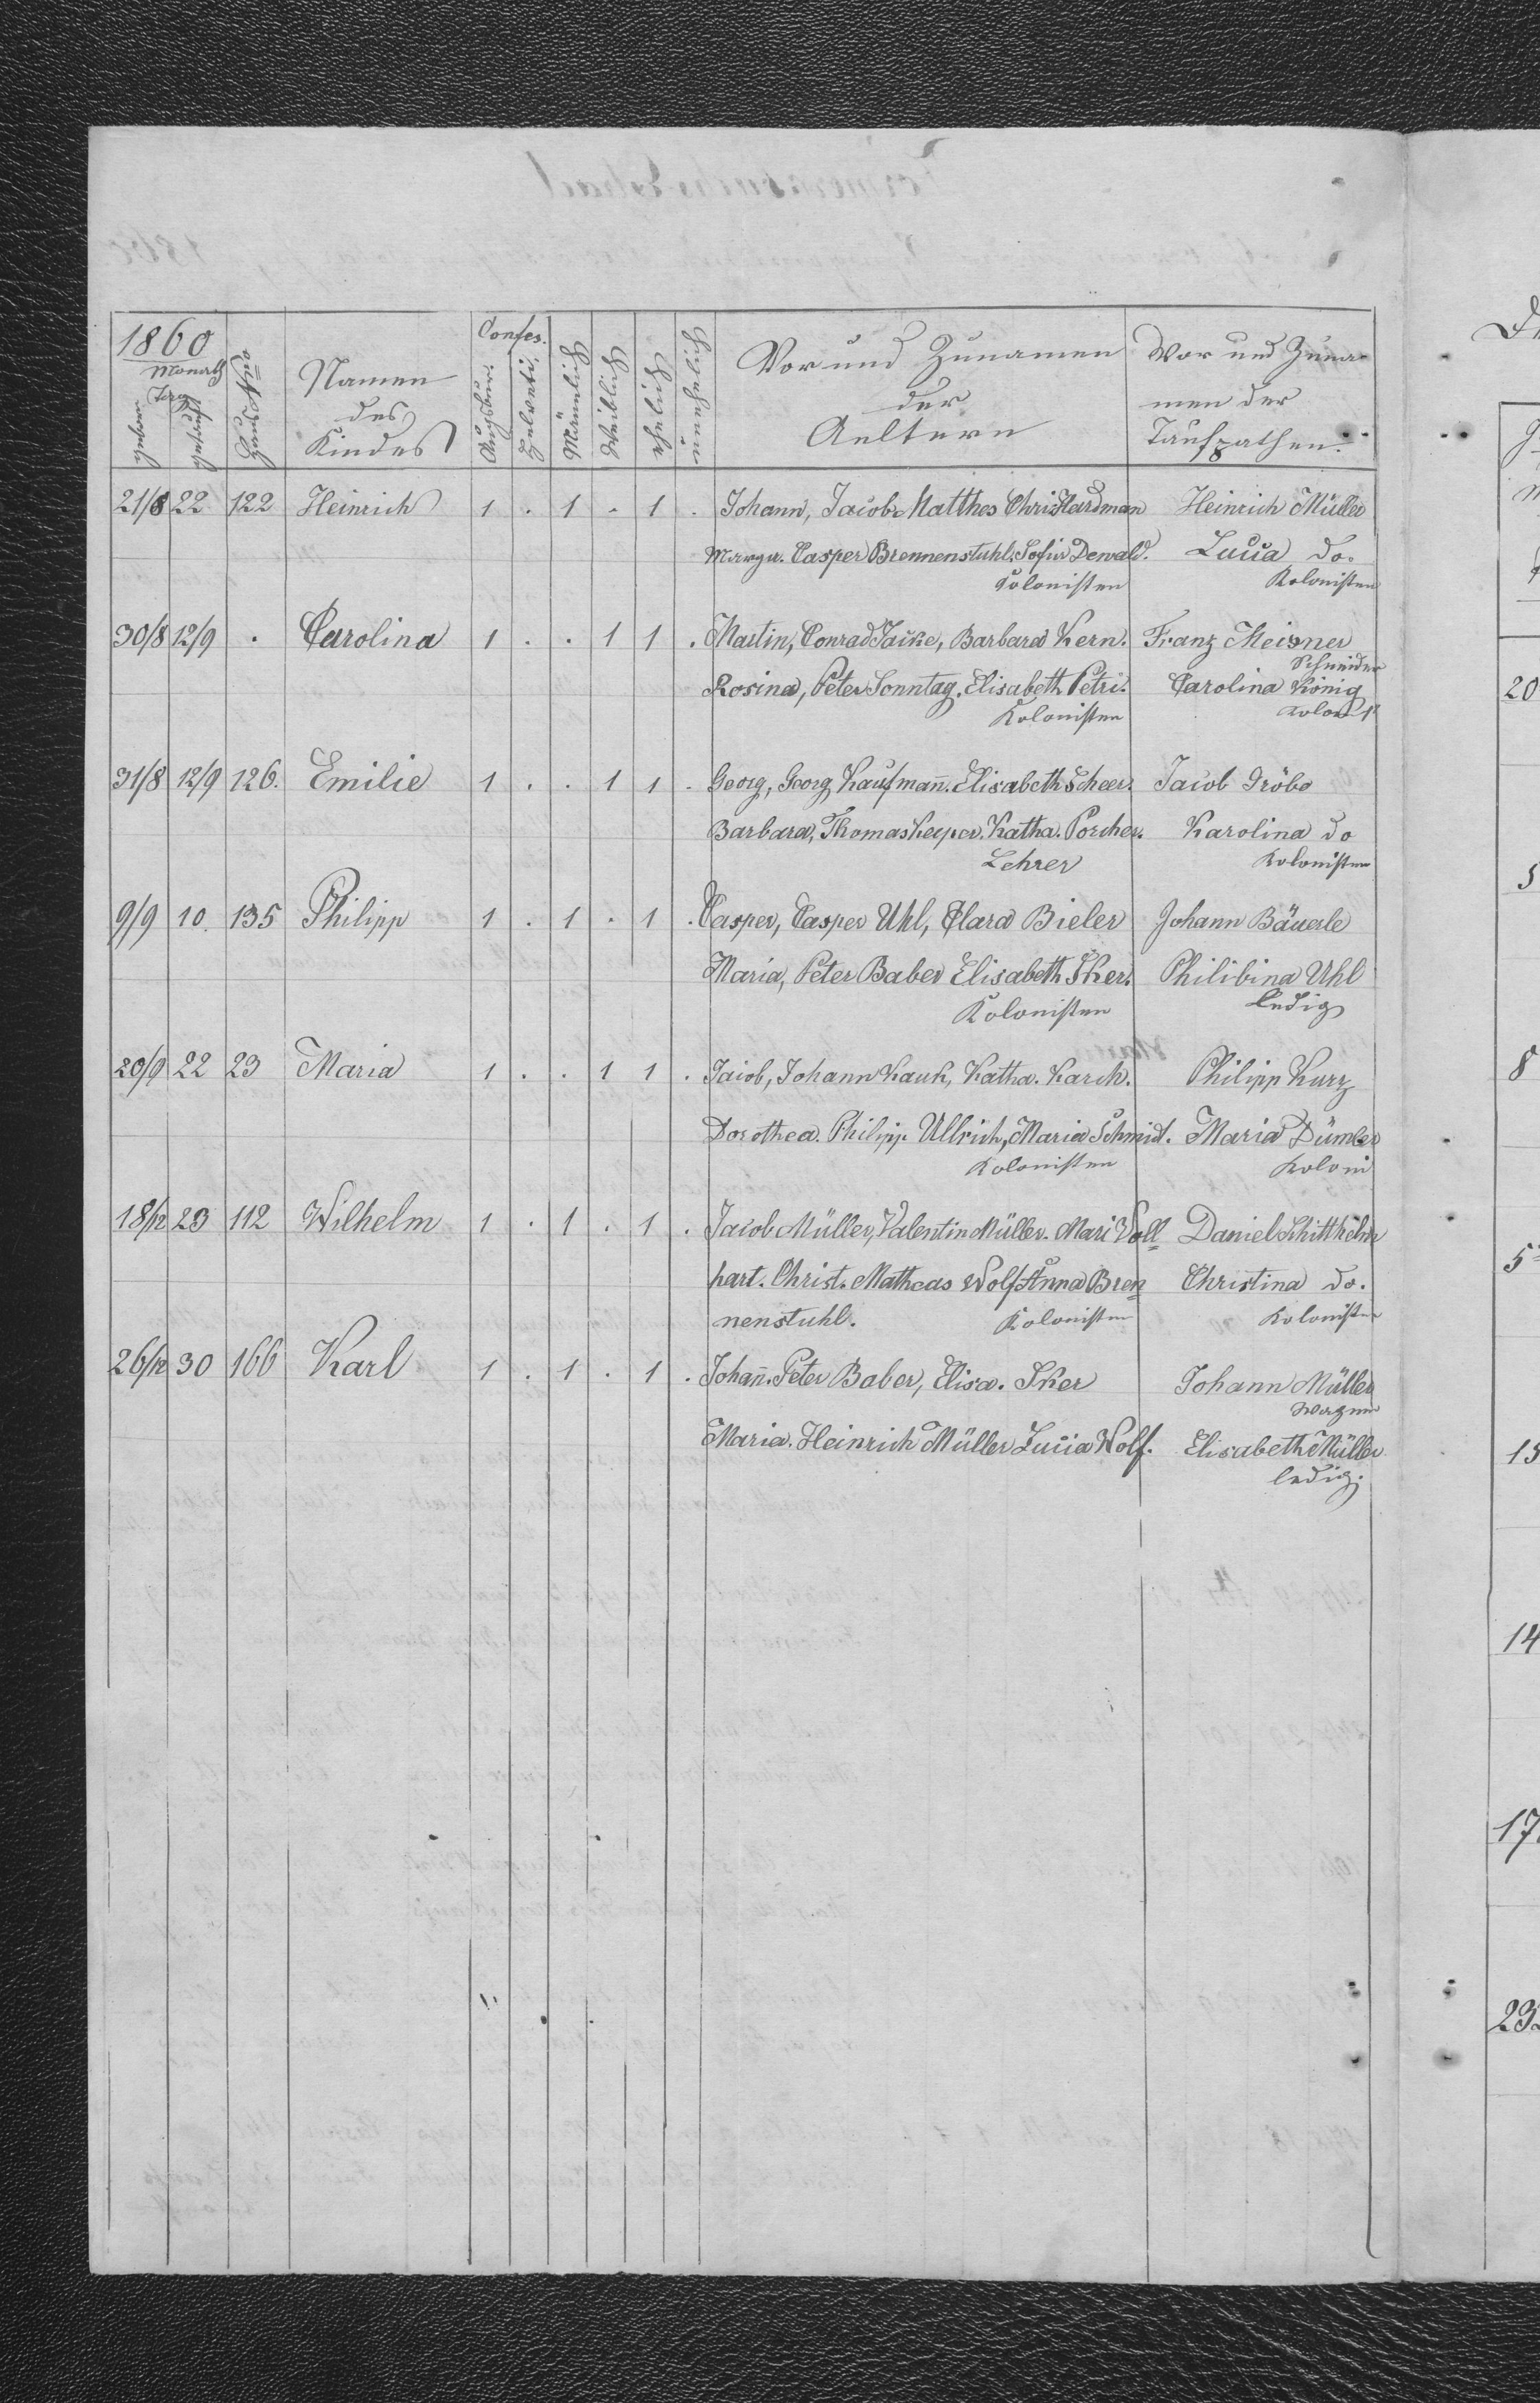 1860
Monath
Tag
geboren
getauft
Haus Nro
Namen
des
Kindes
Confes.
Augsbur.
Helveti.
Mänlich
Weiblich
ehelich
unehelich
Vor und Zunamen
der
Aeltern
Vor und Zuna-
men der
Taufpathen.
21/8 22 122 Heinrich 1 . 1 . 1 . Johann, Jacob Matthes Chris Hardman Heinrich Müller
Marga. Casper Brennenstuhl. Sofia Dewald. Lucia do.
Kolonisten Kolonisten
30/8 12/9 . Carolina 1 . . 1 1 . Martin, Conrad Jacke, Barbara Kern. Franz Meisner
Schneider
Rosina, Peter Sonntag. Elisabeth Petri. Carolina König
Kolonisten
31/8 12/9 126. Emilie 1 . . 1 1 . Georg, Georg Kaufmañ. Elisabeth Scheer. Jacob Gröbo
Barbara, Thomas Keyper. Katha. Porcher. Karolina do
Lehrer Kolonisten
9/9 10. 135 Philipp 1 . 1 . 1 . Casper, Casper Uhl, Clara Bieler Johann Bäuerle
Maria, Peter Baber Elisabeth Sker. Philibina Uhl
Kolonisten ledig
20/9 22 23 Maria 1 . . 1 1 . Jacob, Johann Kauk, Katha. Karch. Philipp Kurz
Dorothea. Philipp Ullrich, Maria Schmid. Maria Dümler
Kolonisten Koloni
18/12 23 112 Wilhelm 1 . 1 . 1 . Jacob Müller, Valentin Müller. Mari Voll= Daniel Schitthelm
hart. Christ. Matheas Wolf Anna Bren= Christina do.
nenstuhl. Kolonisten Kolonisten
26/12 30 166 Karl 1 . 1 . 1 . Johañ. Peter Baber, Elisa. Sker Johann Müller
Wagner
Maria. Heinrich Müller Lucia Wolf. Elisabeth Müller
ledig.
20
5
8
14
17
23